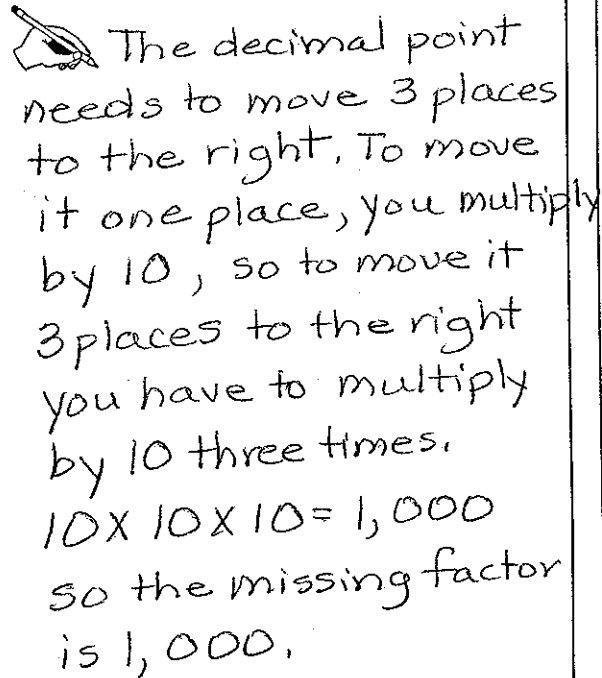 The decimal point
needs to move 3 places
to the right. To move
it one place, you multiply
by 10, so to move it
3 places to the right
you have to multiply
by 10 three times.
10 X 10 X 10 = 1,000
so the missing factor
is 1,000.